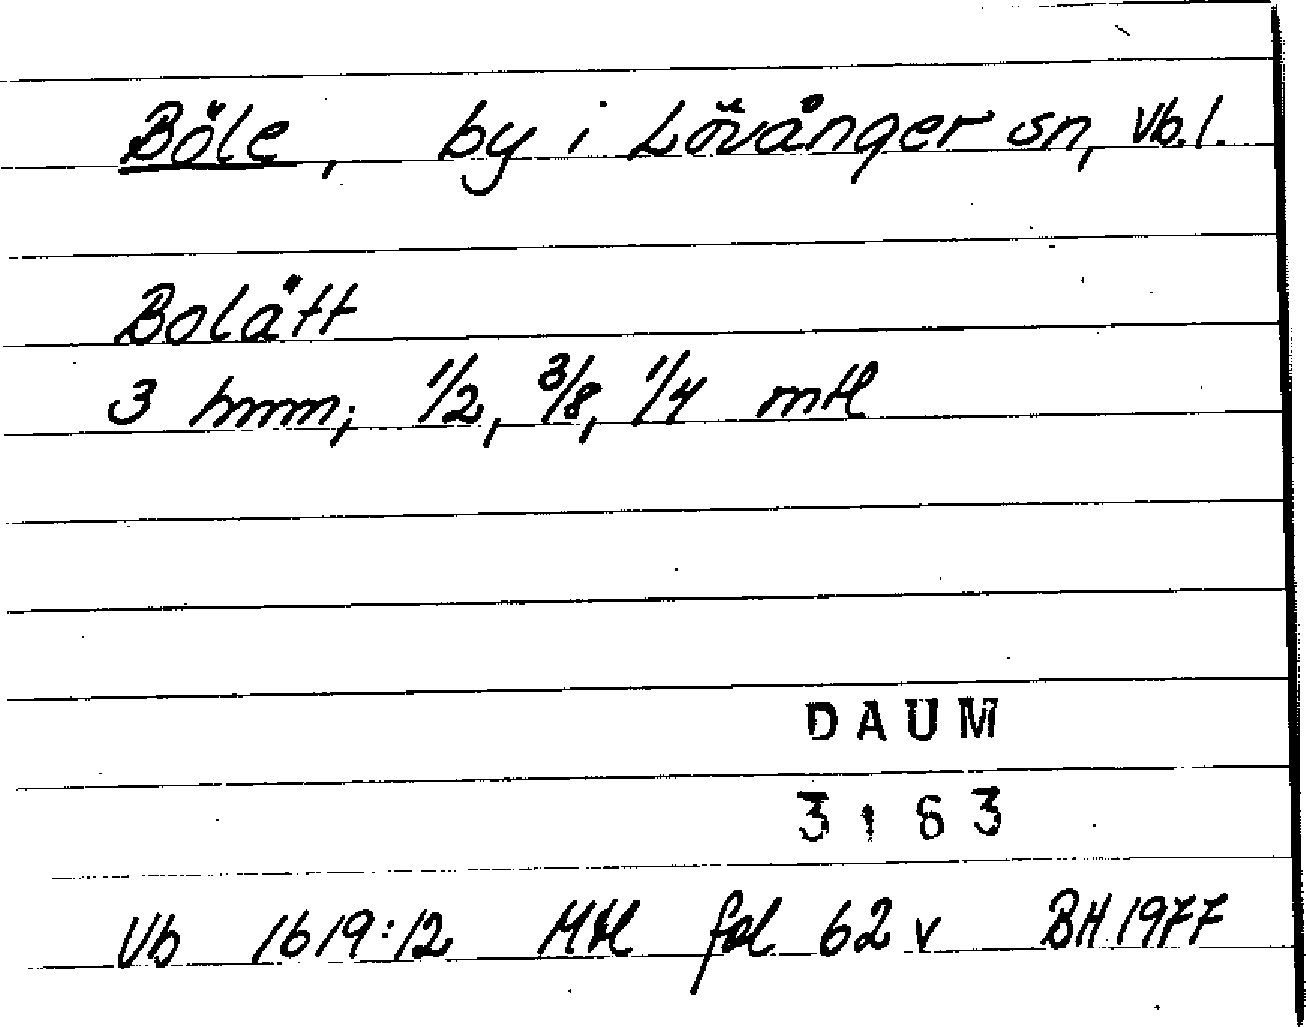 Böle, by i Lövånger sn, Vb.l.
Bolätt
3 hmm; 1/2, 3/8, 1/4 mtl
DAUM
3163
Vb 1619:12 Mtl fol 62 v BH 1977